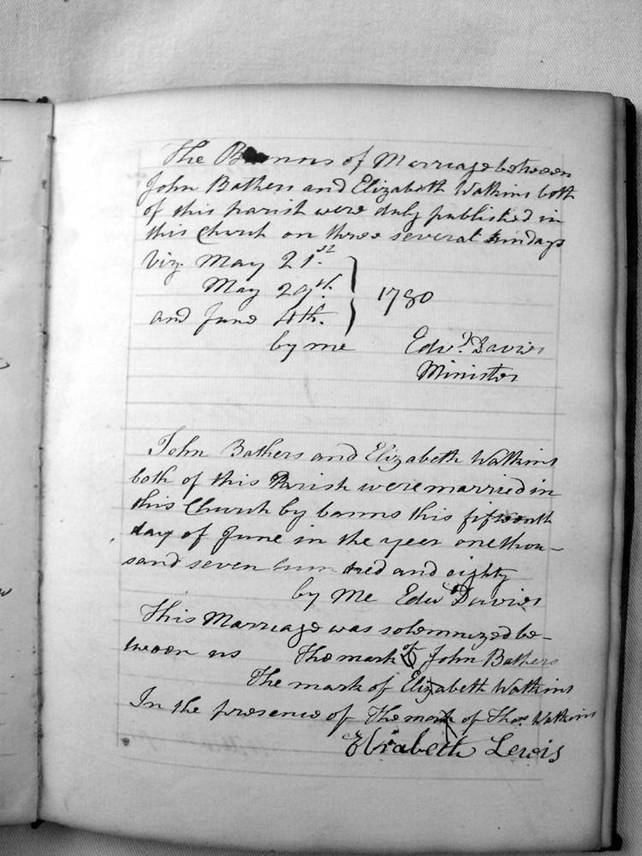 The Banns of Marriage between
John Bathers and Elizabeth Watkins both
of this parish were duly published in
this Church on three several Sundays
Viz. May 21.st
May 29th.
and June 4th.
1780
by me Edwd. Davies
Minister
John Bathers and Elizabeth Watkins
both of this Parish were married in
this Church by banns this fifteenth
day of June in the year one thou-
sand seven hundred and eighty
by Me Edwd Davies
This Marriage was solemnized be-
tween us The mark of John Bathers
The mark of Elizabeth Watkins
In the presence of The mark of Thos. Watkins
Elizabeth Lewis